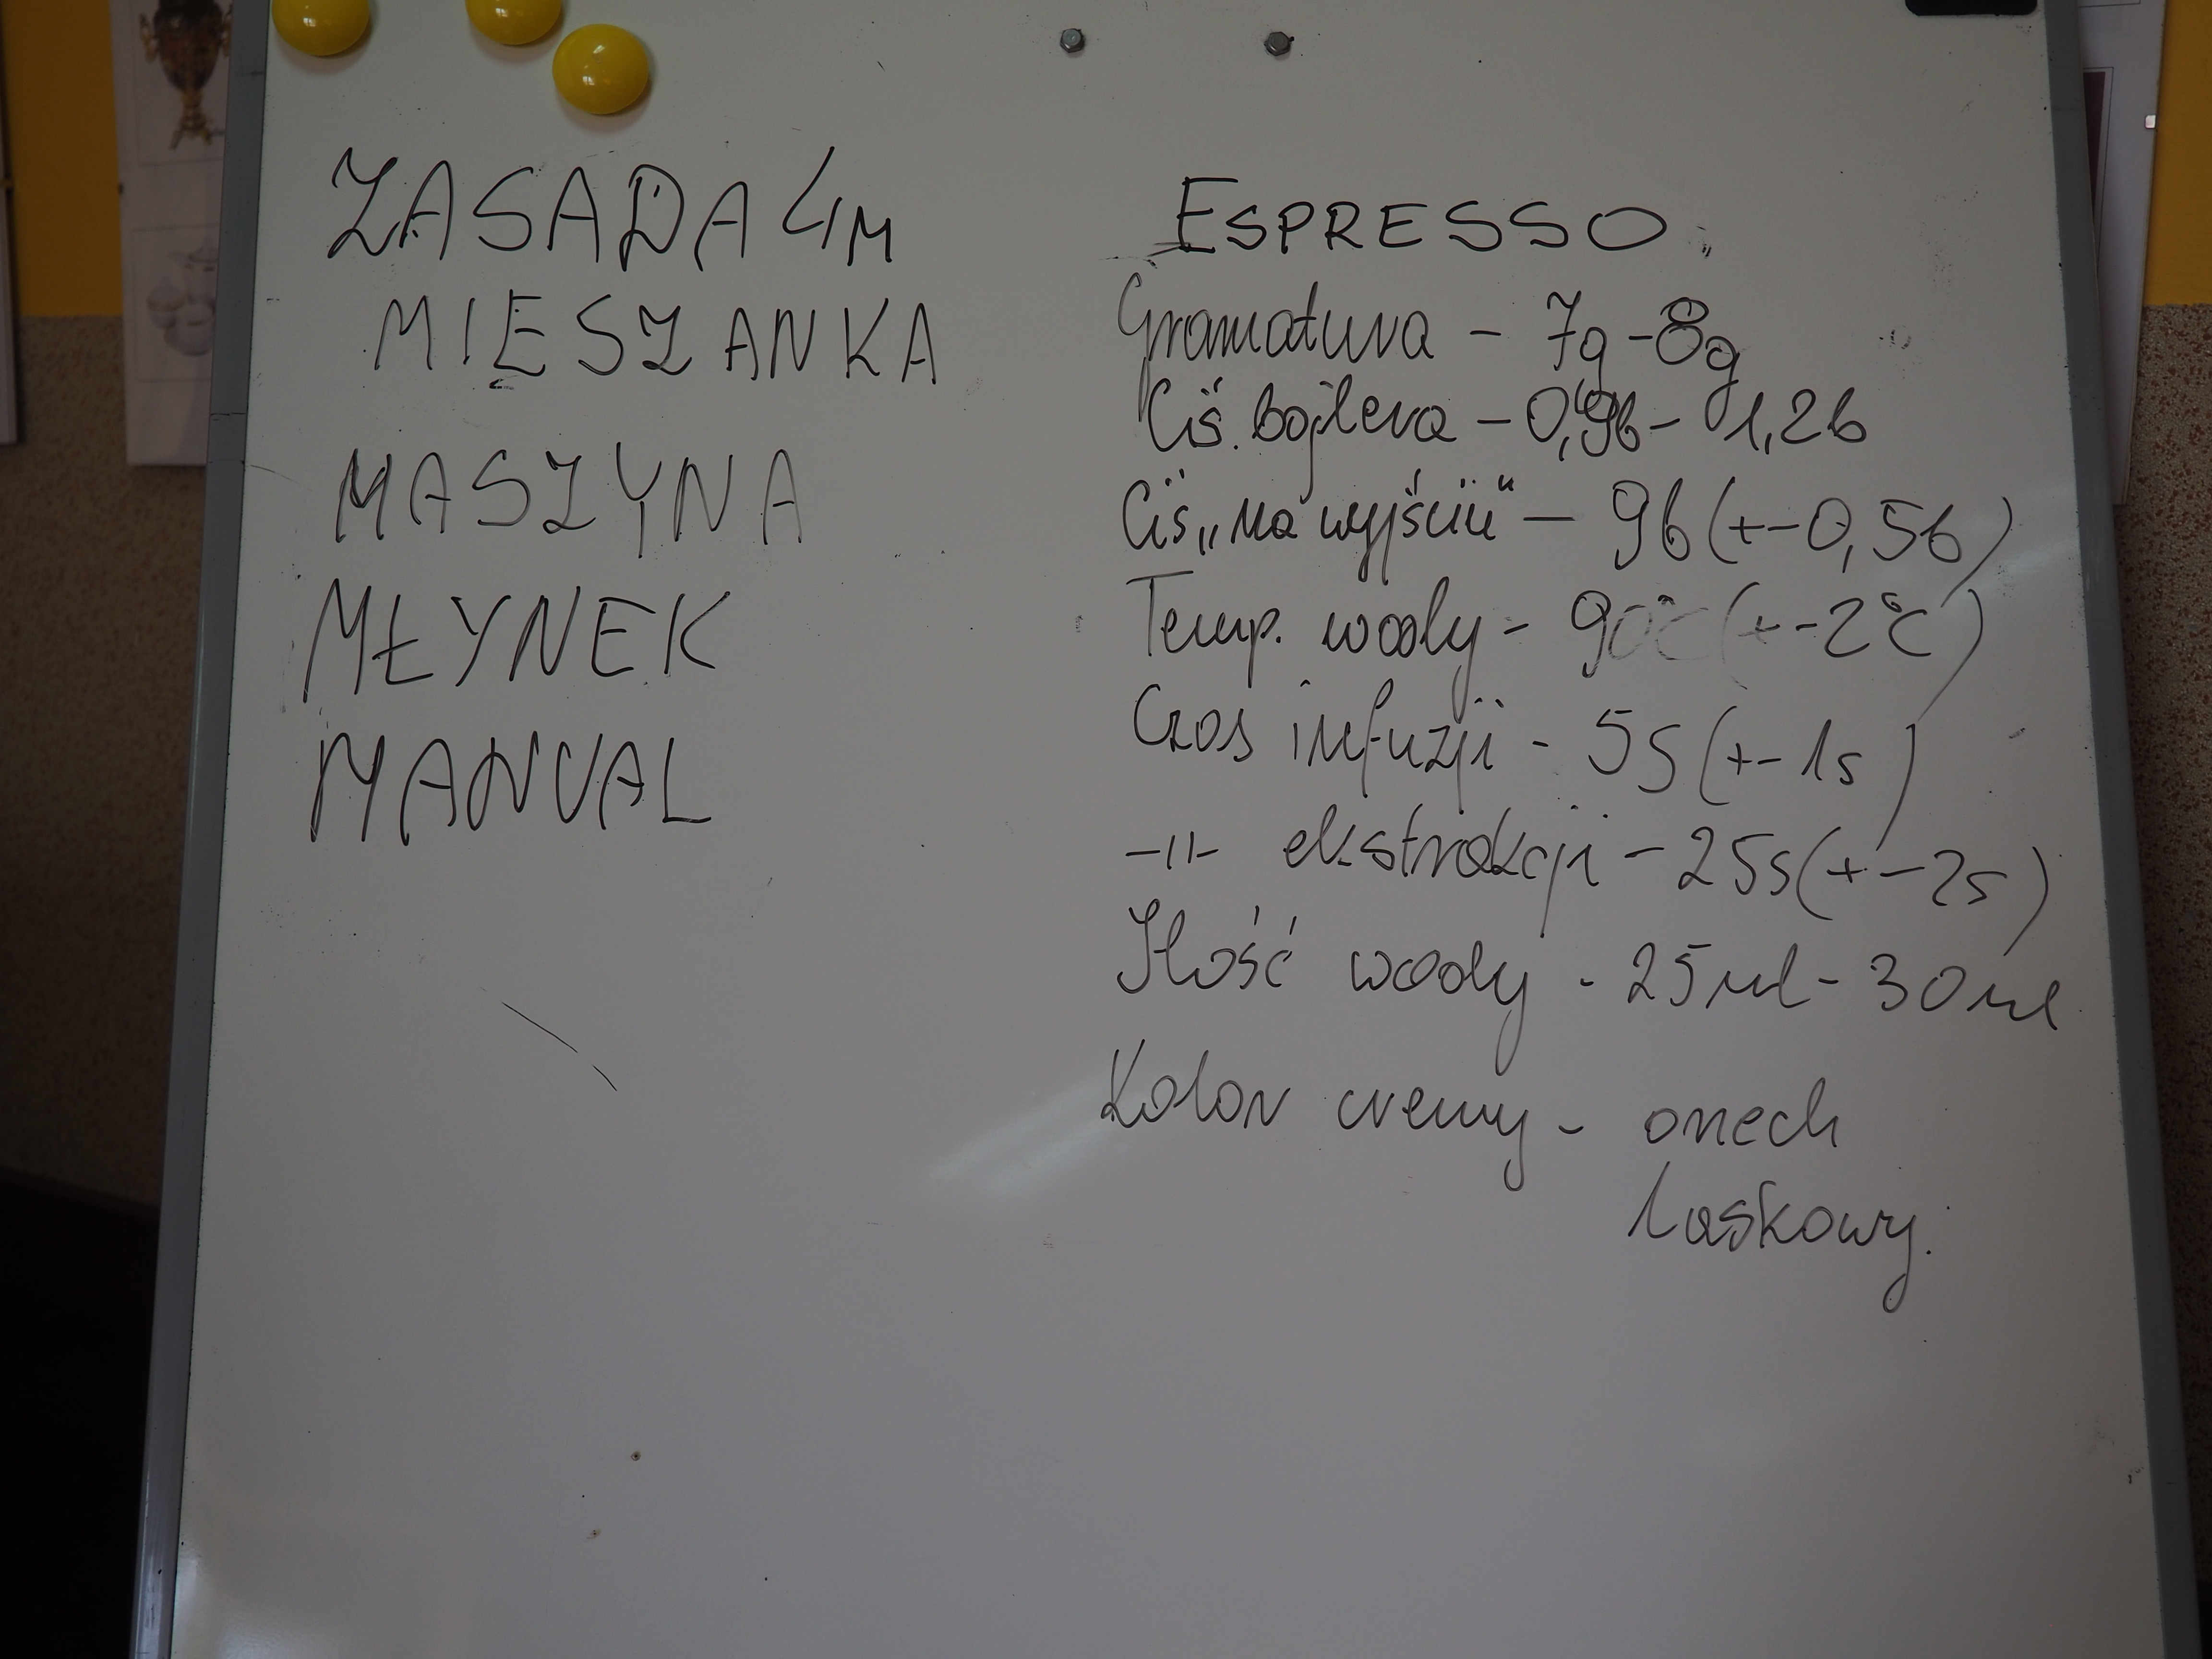 ZASADA 4M
MIESZANKA
MASZYNA
MŁYNEK
MANUAL
ESPRESSO
Gramatura - 7g - 8g
Ciś. bojlera - 0,9b - 1,2b
Ciś „na wyjściu" - 9b (+-0,5b)
Temp. wody - 90°C (+-2°C)
Czas infuzji - 5s (+-1s)
-||- ekstrakcji - 25s (+-2s)
Ilość wody - 25ml - 30ml
Kolor cremy - orzech
laskowy.